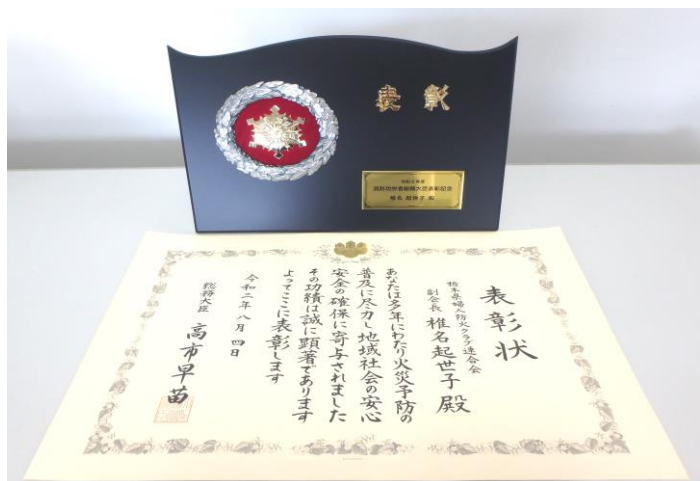 表彰
令和２年度
消防功労者総務大臣表彰記念
椎名 起世子 殿
表彰状
栃木県婦人防火クラブ連合会
副会長 椎名起世子殿
あなたは多年にわたり火災予防の
普及に尽力し地域社会の安心
安全の確保に寄与されました
その功績は誠に顕著であります
よってここに表彰します
令和二年八月四日
総務大臣 高市早苗